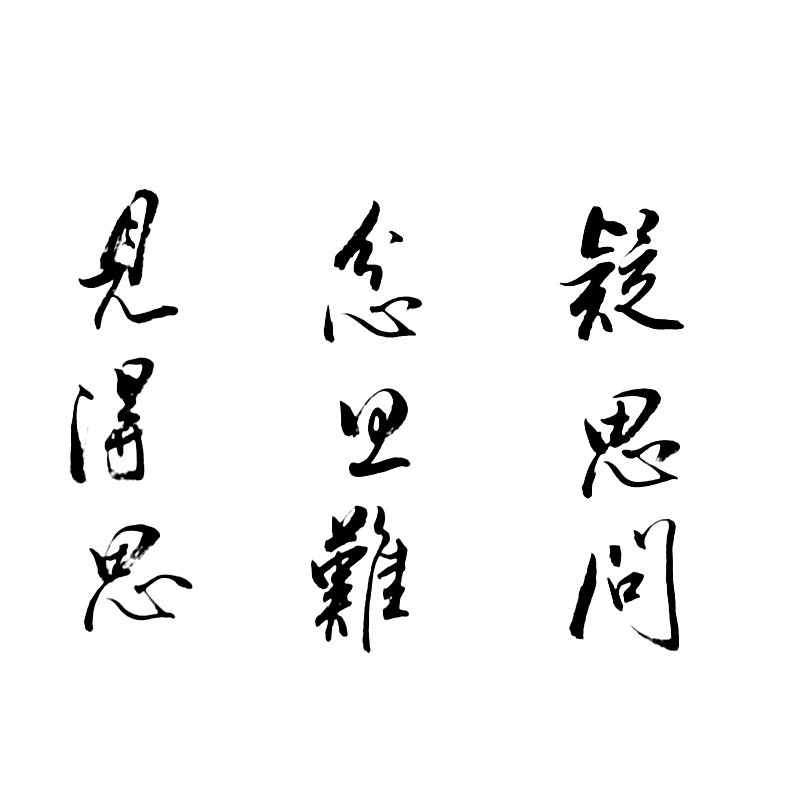 疑思問
忿思難
見得思